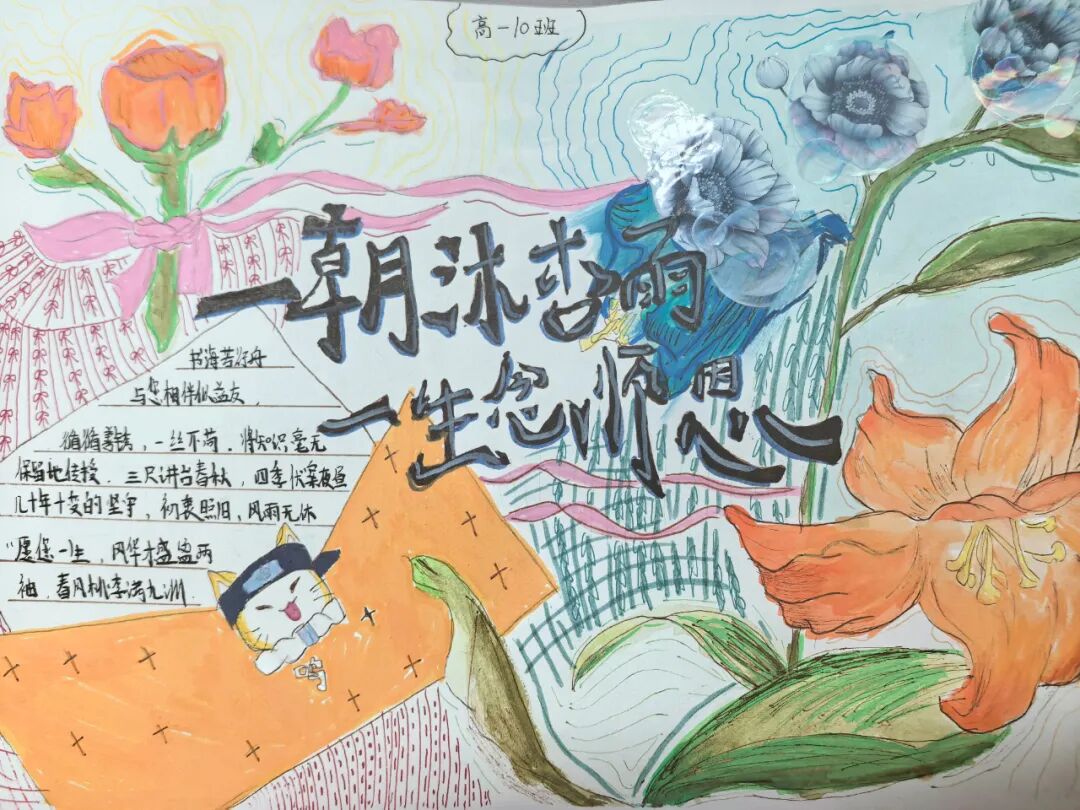 高一10班
一朝沐杏雨
一生念师恩
书海苦行舟
与您相伴似益友
循循善诱，一丝不苟，将知识毫无
保留地传授，三尺讲台春秋，四季伏案夜昼
几十年十变的坚守，初衷照旧，风雨无休
"愿您一生，风华才盛盈两
袖，春风桃李满九洲
鸣